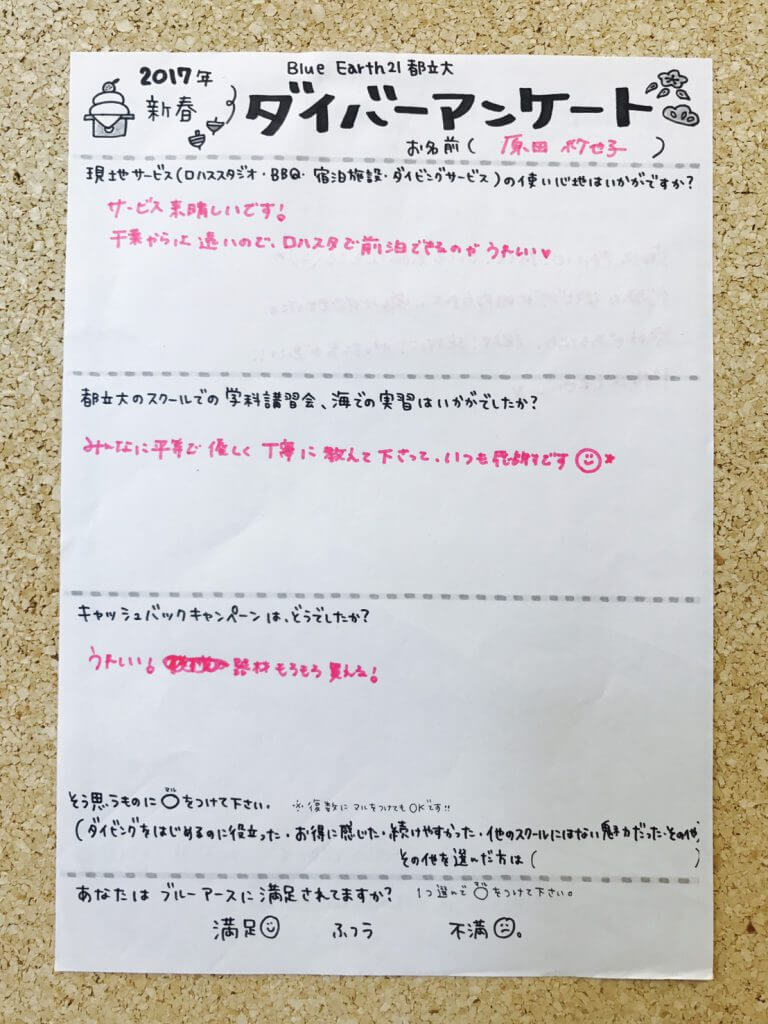 Blue Earth21 都立大
2017年
新春
ダイバーアンケート
お名前 ( 原田 )
現地サービス(ロハススタジオ・BBQ・宿泊施設・ダイビングサービス)の使い心地はいかがですか?
サービス素晴しいです!
千葉からは遠いので、ロハスタで前泊できるのがうれしい♥
都立大のスクールでの学科講習会、海での実習はいかがでしたか?
みんなに平等で優しく丁寧に教えて下さって、いつも感謝です
キャッシュバックキャンペーンは、どうでしたか?
うれしい! 器材もろもろ買える!
そう思うものに○マルをつけて下さい。 ※復数にマルをつけてもOKです!!
(ダイビングをはじめるのに役立った・お得に感じた・続けやすかった・他のスクールにはない魅力だった・その他)
その他を選んだ方は ( )
あなたはブルーアースに満足されてますか? 1つ選んで○マルをつけて下さい。
満足 ふつう 不満。